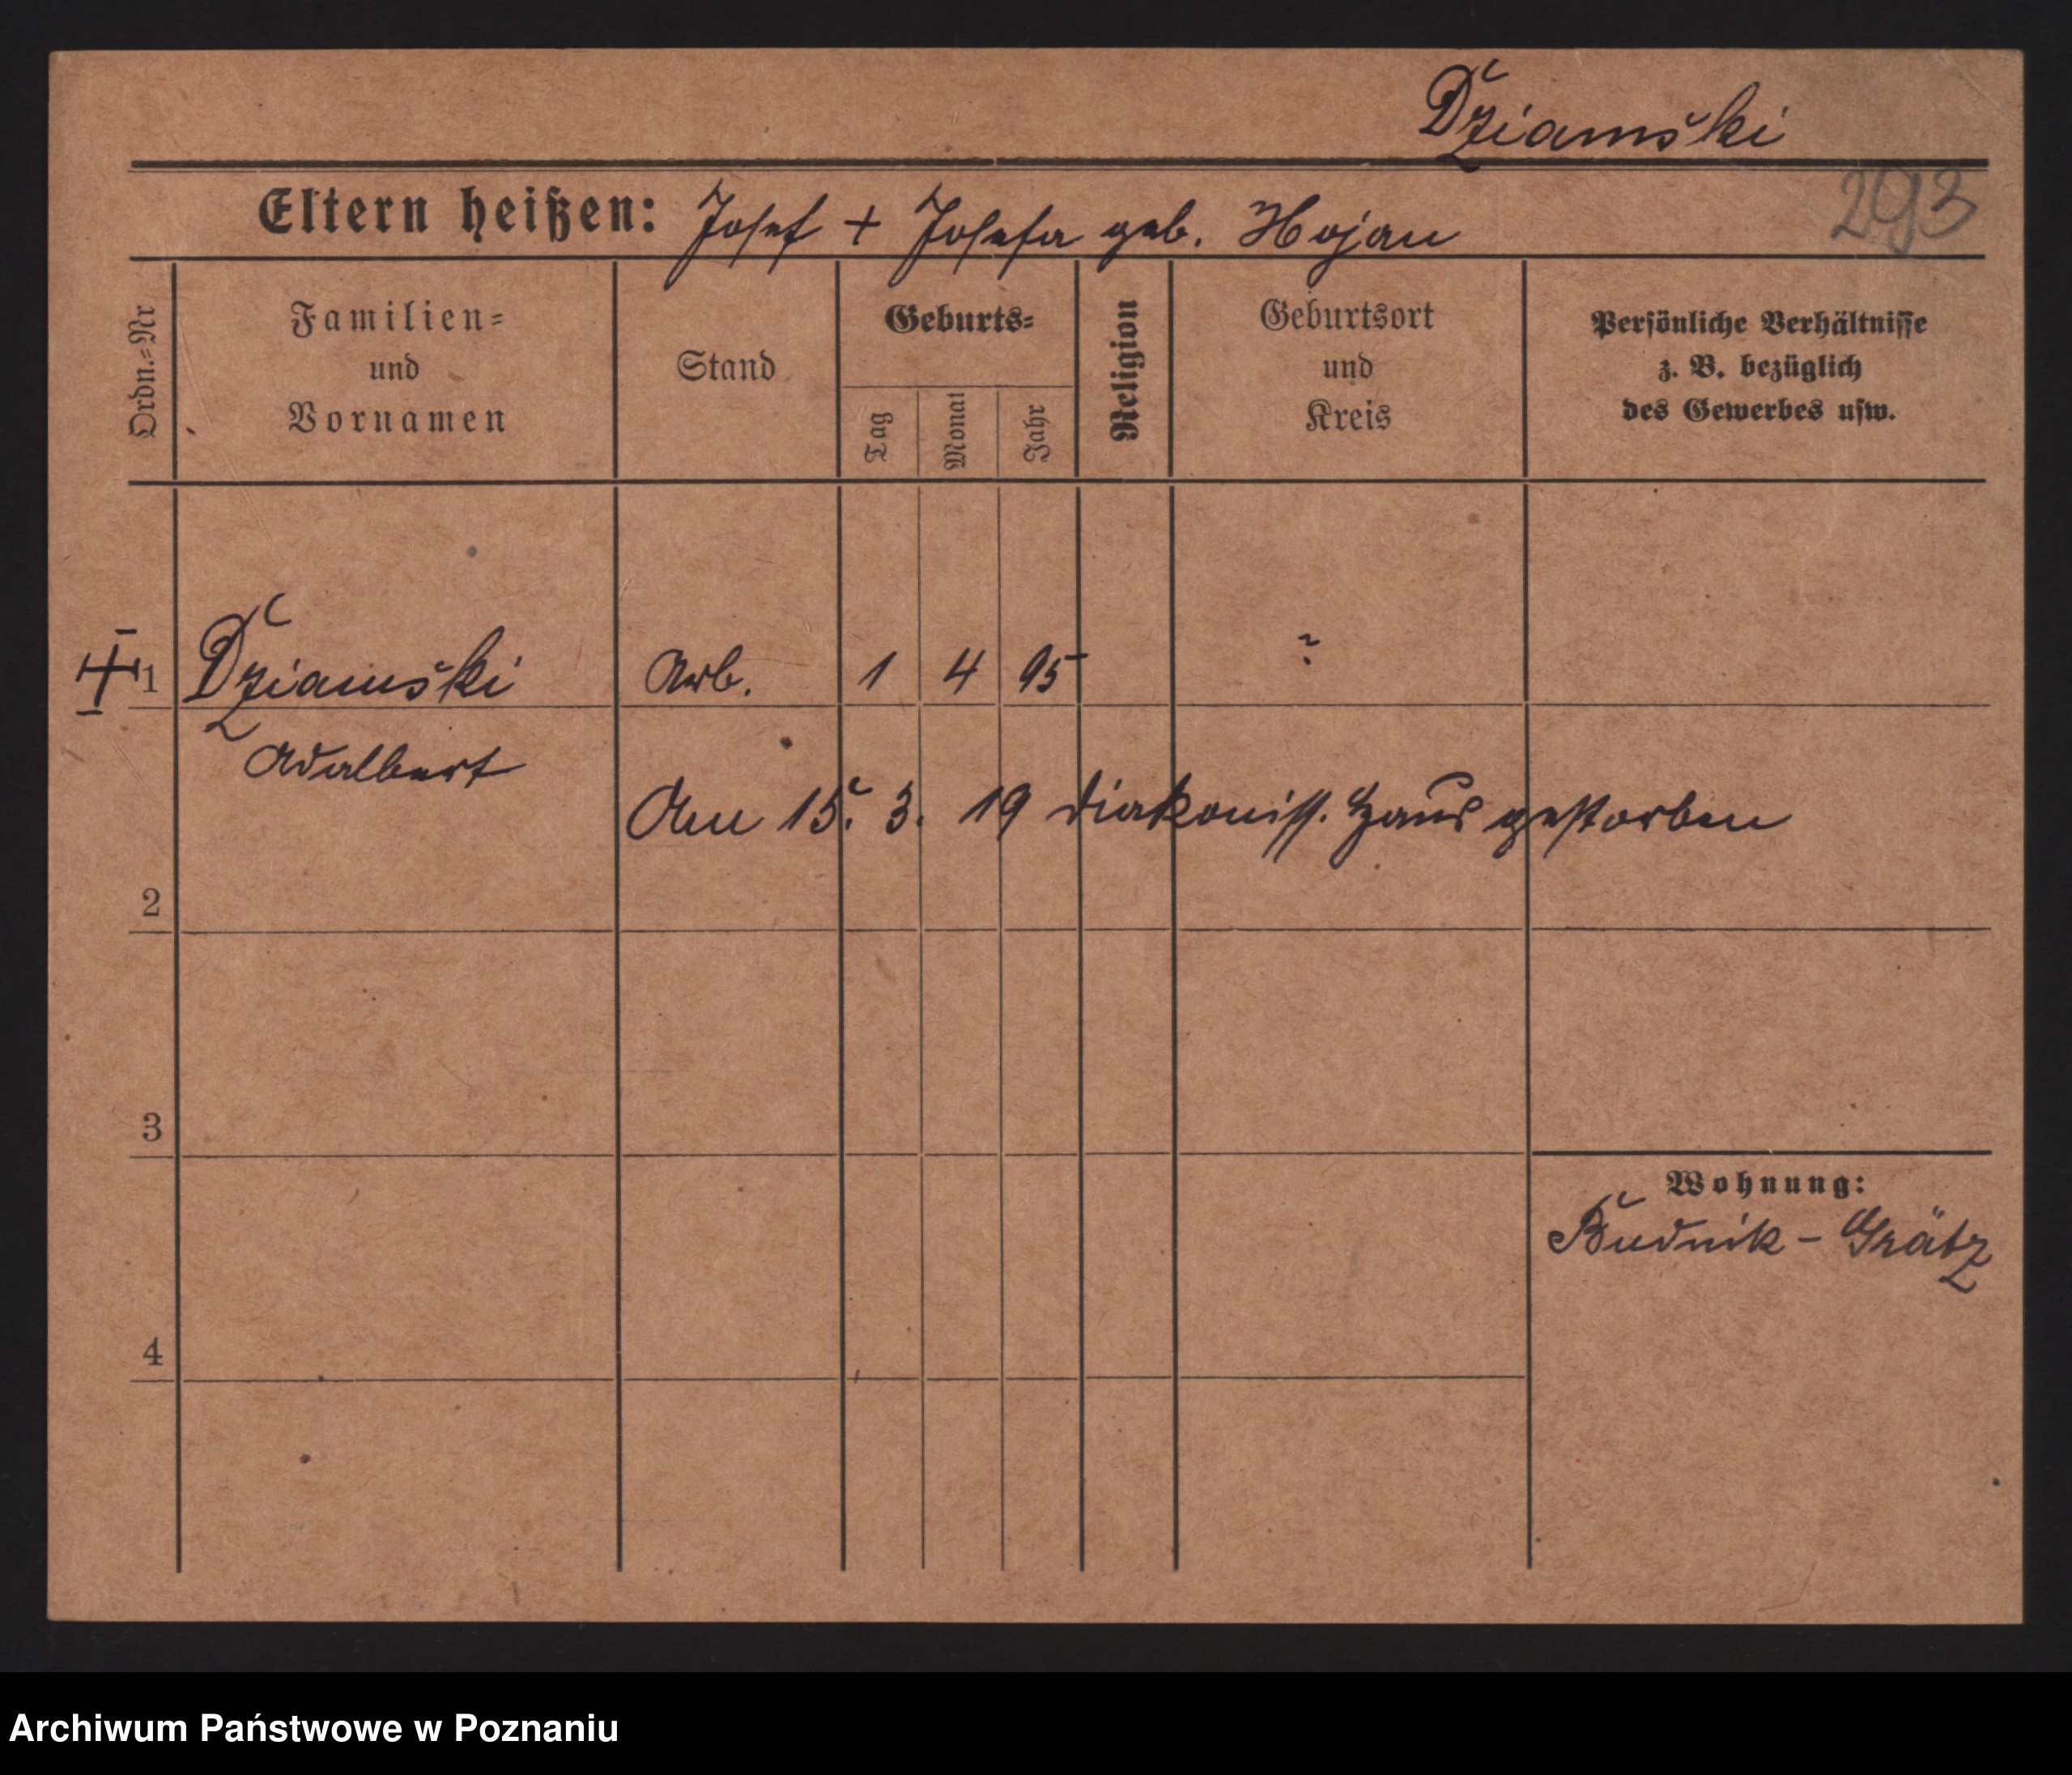 Dziamski
293
Eltern heißen: Josef + Josefa geb. Hojan
Ordn.=Nr
Familien=
und
Vornamen
Stand
Geburts=
Tag
Monat
Jahr
Religion
Geburtsort
und
Kreis
Persönliche Verhältnisse
z. B. bezüglich
des Gewerbes usw.
1 Dziamski Arb. 1 4 95 ?
Adalbert
Am 15. 3. 19 Diakoniss. Haus gestorben
2
3
Wohnung:
Budnik - Grätz
4
Archiwum Państwowe w Poznaniu